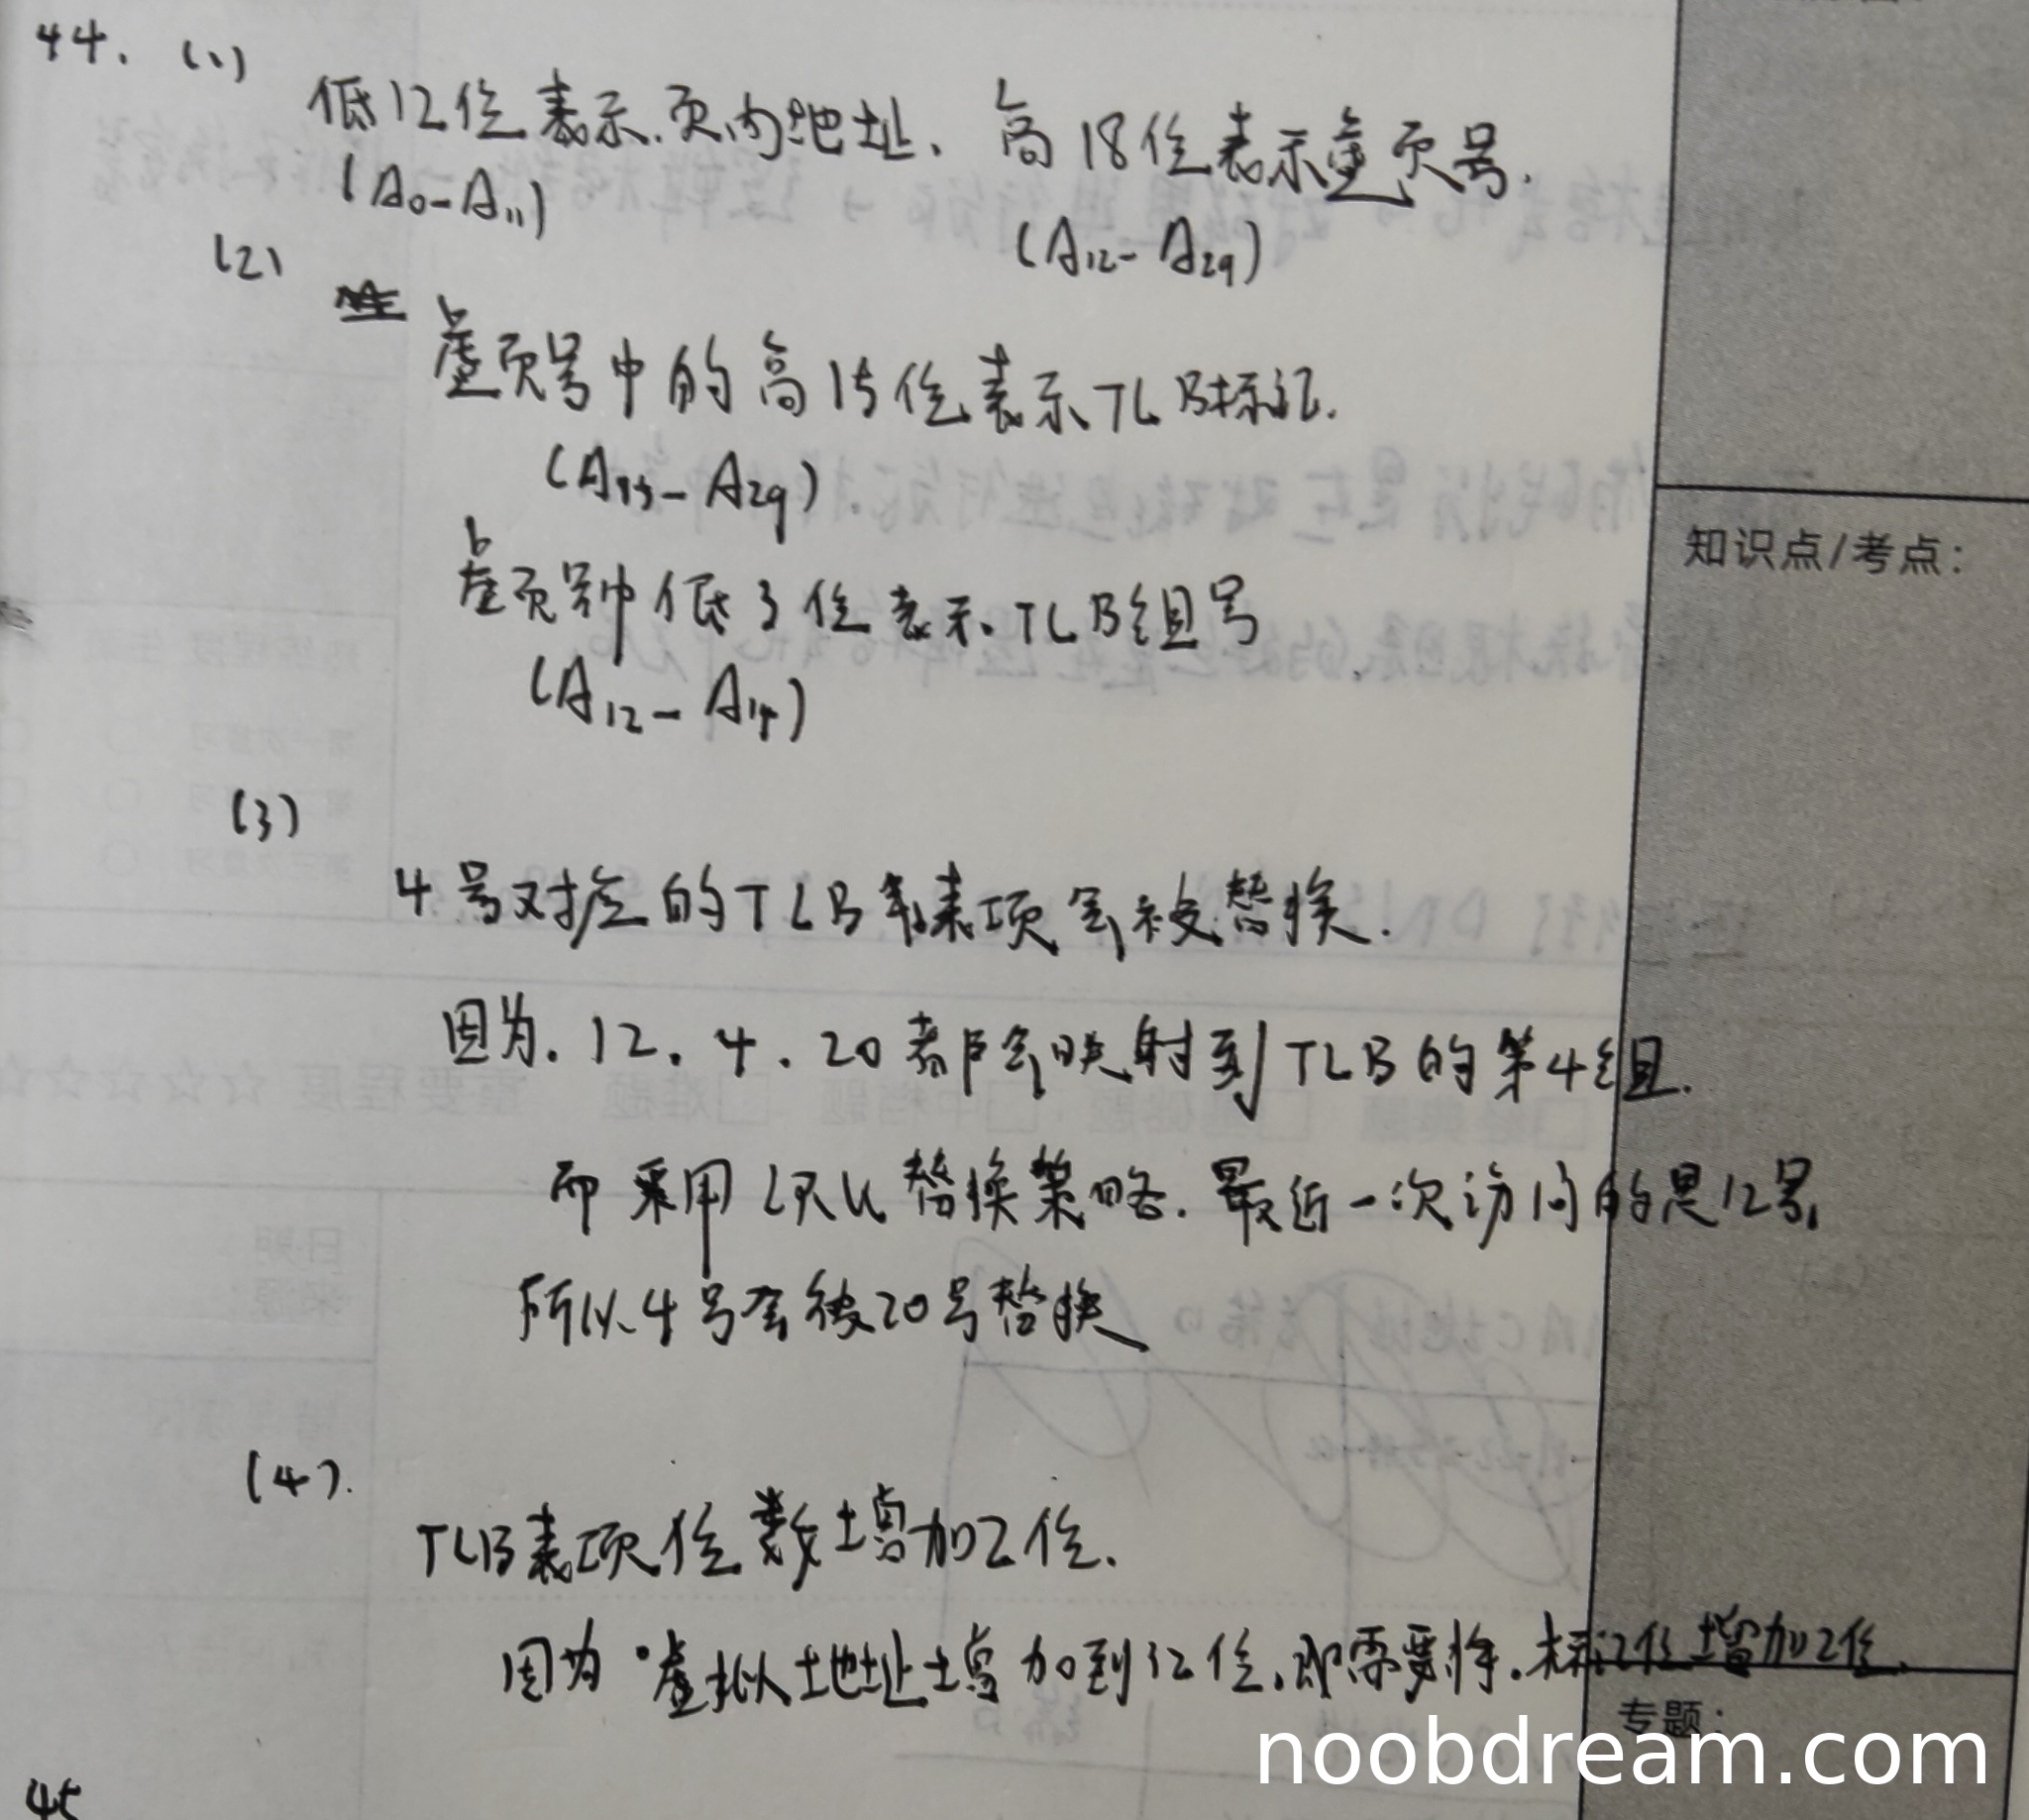 44. (1)
低12位表示页内地址, 高18位表示虚页号.
(A0-A11)
(A12-A29)
(2)
虚页号中的高15位表示TLB标记.
(A15-A29)
虚页号中低3位表示TLB组号
(A12-A14)
知识点/考点:
(3)
4号对应的TLB表项会被替换.
因为. 12. 4. 20都会映射到TLB的第4组.
而采用LRU替换策略. 最近一次访问的是12号,
所以4号会被20号替换
(4).
TLB表项位数增加2位.
因为虚拟地址增加到32位,即需要将.标记位增加2位.
专题:
noobdream.com
45